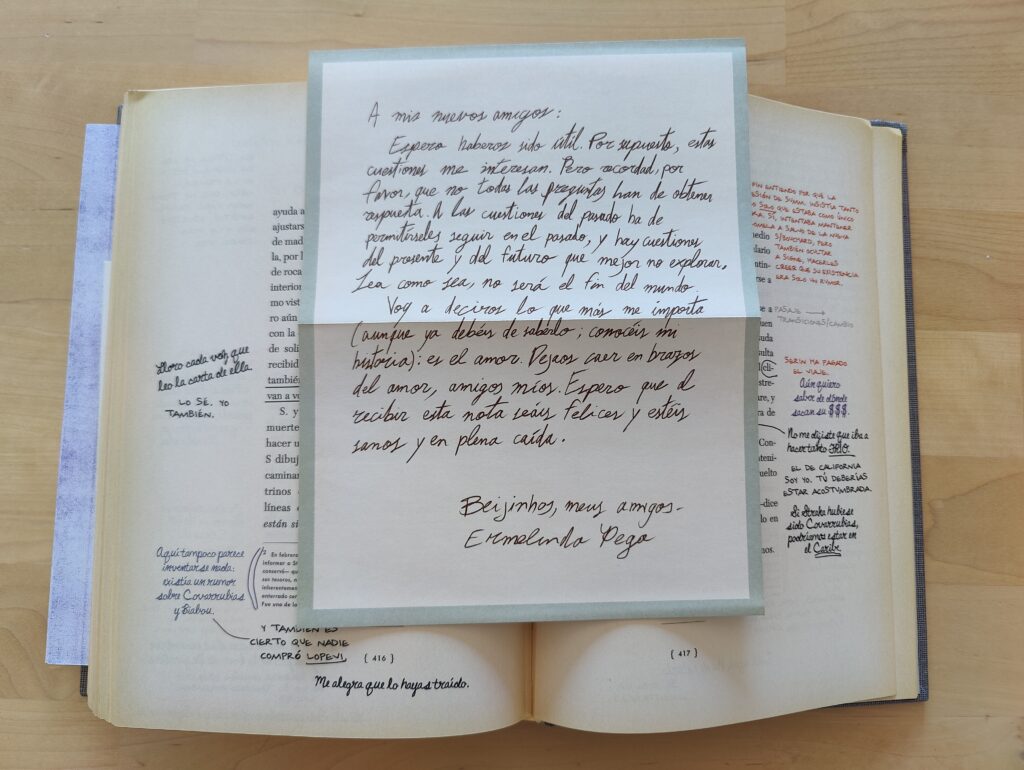 A mis nuevos amigos:
Espero haberos sido útil. Por supuesto, estas
cuestiones me interesan. Pero recordad, por
favor, que no todas las preguntas han de obtener
respuesta. A las cuestiones del pasado ha de
permitírseles seguir en el pasado, y hay cuestiones
del presente y del futuro que mejor no explorar.
Sea como sea, no será el fin del mundo.
Voy a deciros lo que más me importa
(aunque ya debéis de saberlo; conocéis mi
historia): es el amor. Dejaos caer en brazos
del amor, amigos míos. Espero que al
recibir esta nota seáis felices y estéis
sanos y en plena caída.
Beijinhos, meus amigos-
Ermelinda Pega
ayuda a
ajustars
de mad
la, por l
de roca
interior
mo vist
ro aún
con la
de soli
recibid
también
van a vo
S. y
muerte
hacer u
S dibuj
caminar
trinos
líneas
están si
Lloro cada vez que
leo la carta de ella.
LO SÉ. YO
TAMBIÉN.
Aquí tampoco parece
inventarse nada:
existía un rumor
sobre Covarrubias
y Biabou.
2 En febrero
informar a S
conservó— qu
sus tesoros, n
inherentemen
enterrado cer
Fue uno de lo
Y TAMBIÉN ES
CIERTO QUE NADIE
COMPRÓ LOPEVI.
{ 416 }
Me alegra que lo hayas traído.
FIN ENTIENDO POR QUÉ LA
SIGNE INSISTÍA TANTO
SOLO QUE ESTABA COMO ÚNICO
SÍ, INTENTABA MANTENER
A SALVO DE LA NUEVA
S/BOUCHARD, PERO
TAMBIÉN OCULTAR
A SIGNE, HACERLES
CREER QUE SU EXISTENCIA
ERA SOLO UN RUMOR.
medio
lario
ntin-
rse a
ue a
uen
suda
sulta
cli-
stre-
re, y
ra de
Con-
nteni-
uelto
-dice
lo en
nos.
PASAJE →
TRANSICIONES/CAMBIO
SERIN HA PAGADO
EL VIAJE.
Aún quiero
saber de dónde
sacan su $$$.
No me dijiste que iba a
hacer tanto FRÍO.
EL DE CALIFORNIA
SOY YO. TÚ DEBERÍAS
ESTAR ACOSTUMBRADA.
Si Straka hubiese
sido Covarrubias,
podríamos estar en
el Caribe.
{ 417 }